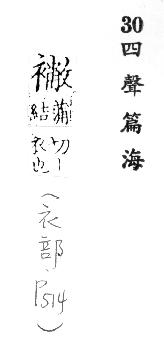 30四聲篇海
𢄌蒲結切｜衣也
（衣部，P.514）